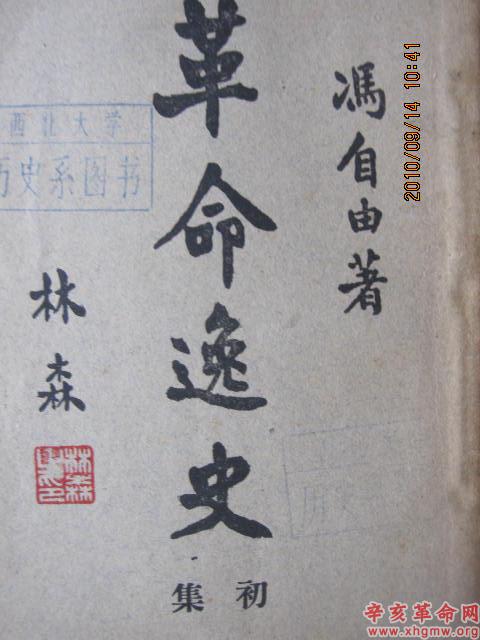 馮自由著
革命逸史
初集
林森
西北大学
历史系图书
2010/09/14 10:41
辛亥革命网
www.xhgmw.org